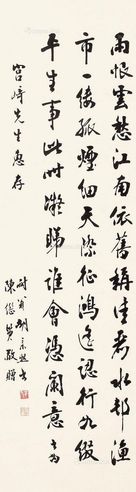 雨恨雲愁江南依舊稱佳麗水邨漁
市一縷孤煙細天際征鴻遙認行如綴
平生事此时凝睇誰會憑闌意
宮崎先生惠存
敬贈